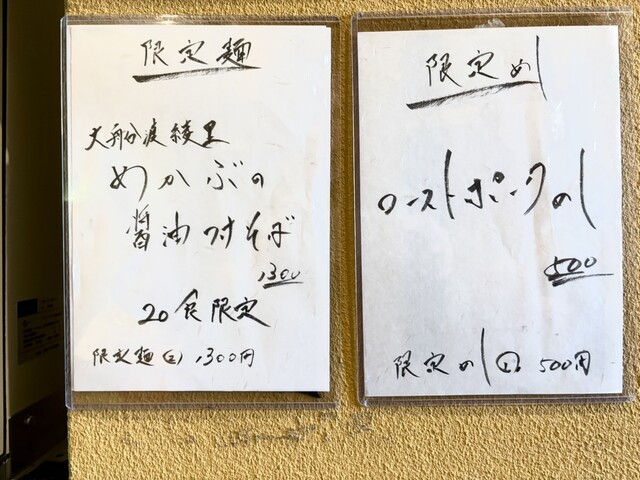 限定麺
大船渡綾里
めかぶの
醤油つけそば
1300
20食限定
限定麺 1300円
限定めし
ローストポークめし
500
限定めし 500円